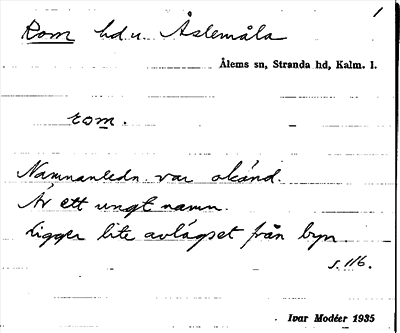 1
Rom hd u. Åslemåla
Ålems sn, Stranda hd, Kalm. l.
rom.
Namnanledn. var okänd.
Är ett ungt namn.
Ligger lite avlägset från byn.
s. 116.
Ivar Modéer 1935